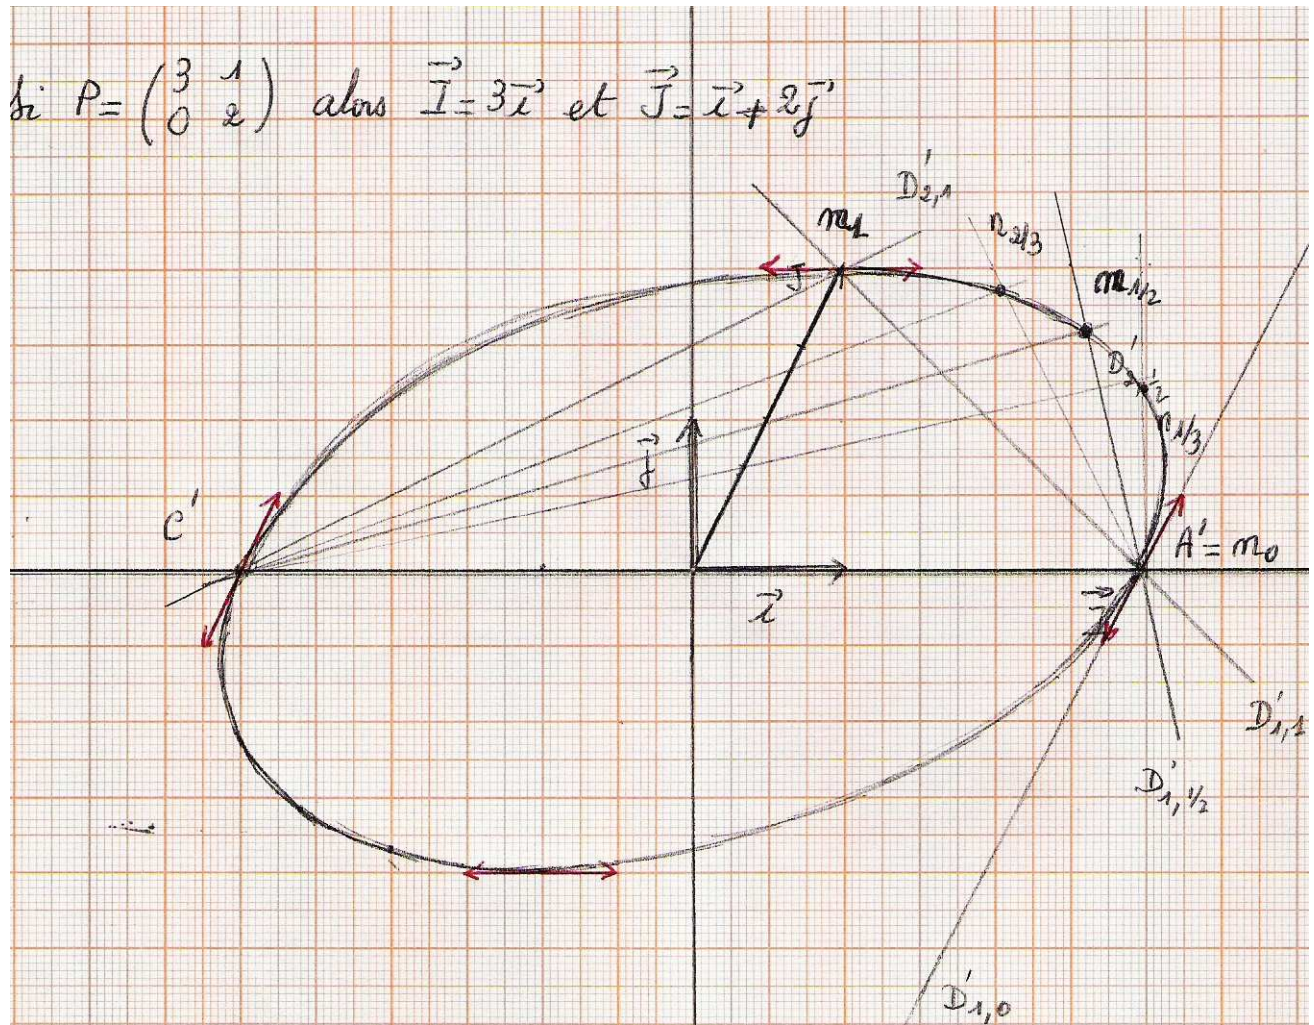 Si P = (3 1
0 2) alors I⃗ = 3i⃗ et J⃗ = i⃗ + 2j⃗
D'2,1
m1
n2/3
m1/2
J
D'2,1/2
n1/3
j⃗
C'
A' = m0
i⃗
I⃗
D'1,1
D'1,1/2
D'1,0